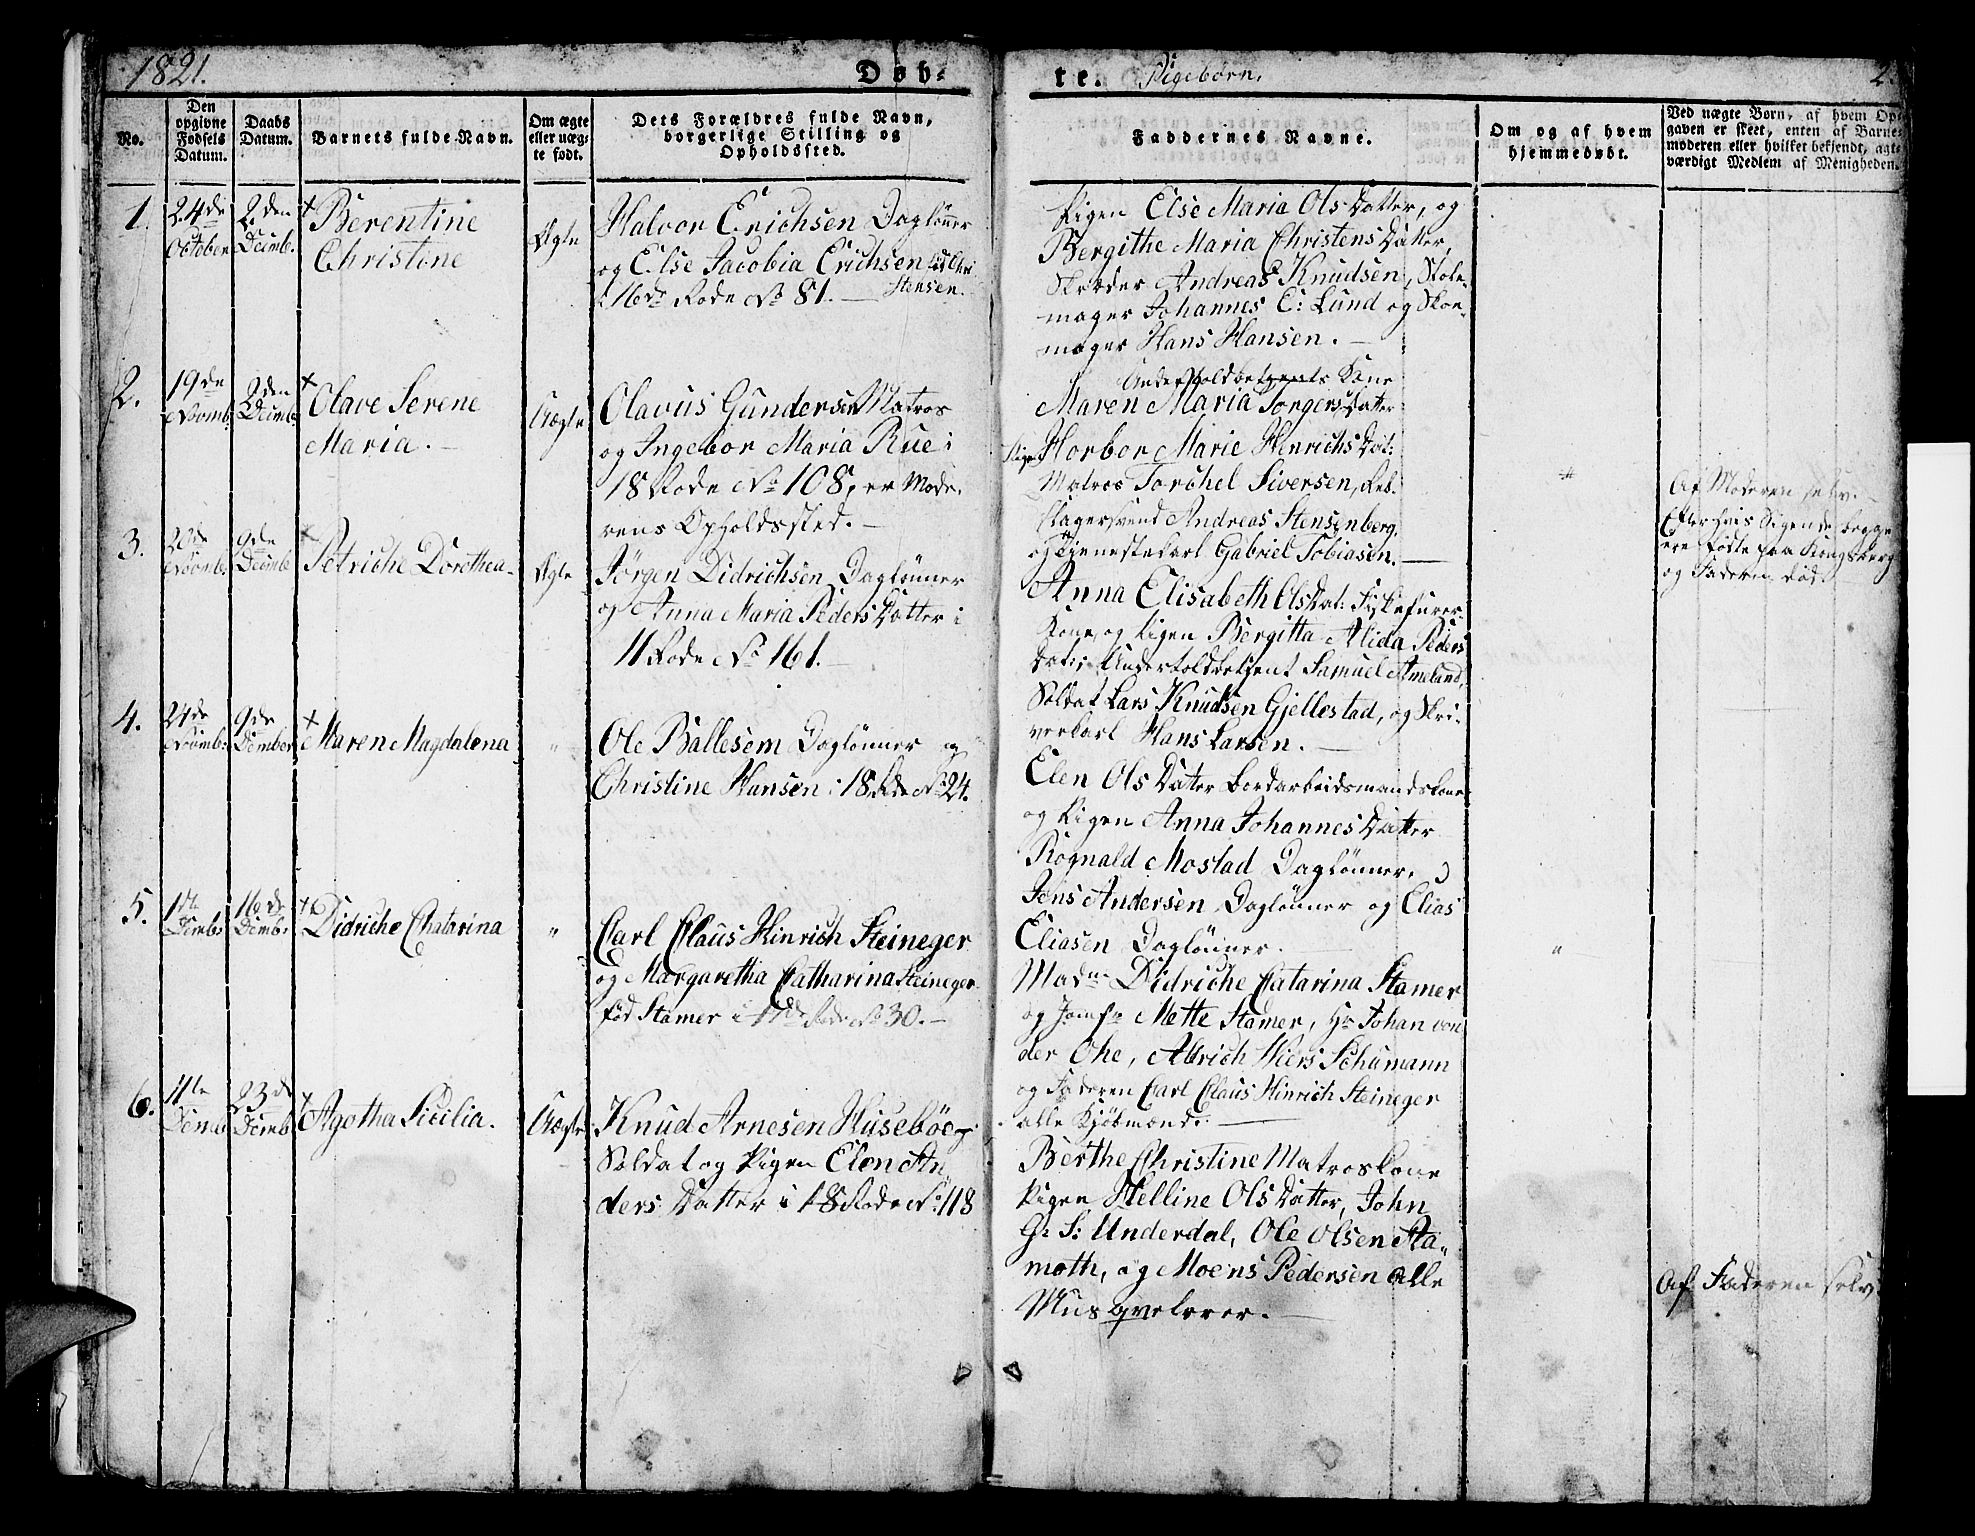 1821.
Døb-
te. Pigebørn.
2.
No.
Den opgivne Fødsels Datum.
Daabs Datum.
Barnets fulde Navn.
Om ægte eller uægte født.
Dets Forældres fulde Navn, borgerlige Stilling og Opholdssted.
Faddernes Navne.
Om og af hvem hjemmedøbt.
Ved uægte Børn, af hvem Opgaven er skeet, enten af Barnemoderen eller hvilket bekjendt, agtværdigt Medlem af Menigheden.
1.
24de October
2den Decmb.
Berentine
Christine
Ægte
Halvor Erichsen Daglønner
og Else Jacobia Erichsen fød Chri
stensen
i 16de Rode No 81.
Pigen Else Maria Ols Datter, og
Bergithe Maria Christens Datter,
Skræder Andreas Knudsen, Stole-
mager Johannes C: Lund og Skoe-
mager Hans Hansen.
2.
19de Novmb.
2den Decmb.
Olave Serene
Maria.
Uægte
Olavus Gundersen Matros
og Ingebor Maria Rue i
18 Rode No 108, er Mode-
rens Opholdssted.
Undertoldbetjents Kone
Maren Maria Torgers Datter
Pige Horbor Marie Henrichs Dat:
Matros Torchel Siversen, Reb-
slagersvend Andreas Stensenberg,
og Tjenestekarl Gabriel Tobiasen.
Af Moderen selv.
Efter hvis Sigende begge
ere fødte paa Kongsberg
og Faderen død.
3.
20de Novmb.
9de Decmb
Petriche Dorothea
Ægte
Jørgen Didrichsen Daglønner
og Anna Maria Peders Datter i
11 Rode No 161.
Anna Elisabeth Ols Dat:
Kone, og Pigen Bergitta Alida Peders
Dat:, Undertoldbetjent Samuel Ameland,
Soldat Lars Knudsen Gjellestad, og Skri-
verkarl Hans Larsen.
4.
24de Novmb:
9de Decmber
Maren Magdalena
"
Ole Ballesem Daglønner og
Christine Hansen i 18 Rde No 24.
Elen Ols Datter Bordarbeidsmandskone
og Pigen Anna Johannes Datter
Rognald Mostad Daglønner,
Jens Andersen Daglønner og Elias
Eliasen Daglønner.
5.
1ste Decmb:
16de Decmb:
Didriche Chatarina
"
Carl Claus Hinrich Steineger
og Margaretha Catharina Steineger
fød Stamer i 17de Rode No 30.
Madm Didriche Catarina Stamer
og Jomfr Mette Stamer, Hr Johan von
der Ohe, Albrich Wiers Schumann
og Faderen Carl Claus Hinrich Steineger
alle Kjøbmænd.
"
6.
11te Decmb
23de Decmb
Agotha Sicilia.
Uægte
Knud Arnesen Husebøe
Soldat og Pigen Elen An
ders Datter i 18 Rode No 118
Berthe Christine Matroskone
Pigen Helline Ols Datter, John
G: S: Underdal, Ole Olsen Aa-
moth, og Moens Pedersen alle
Musqveterer.
Af Faderen selv.